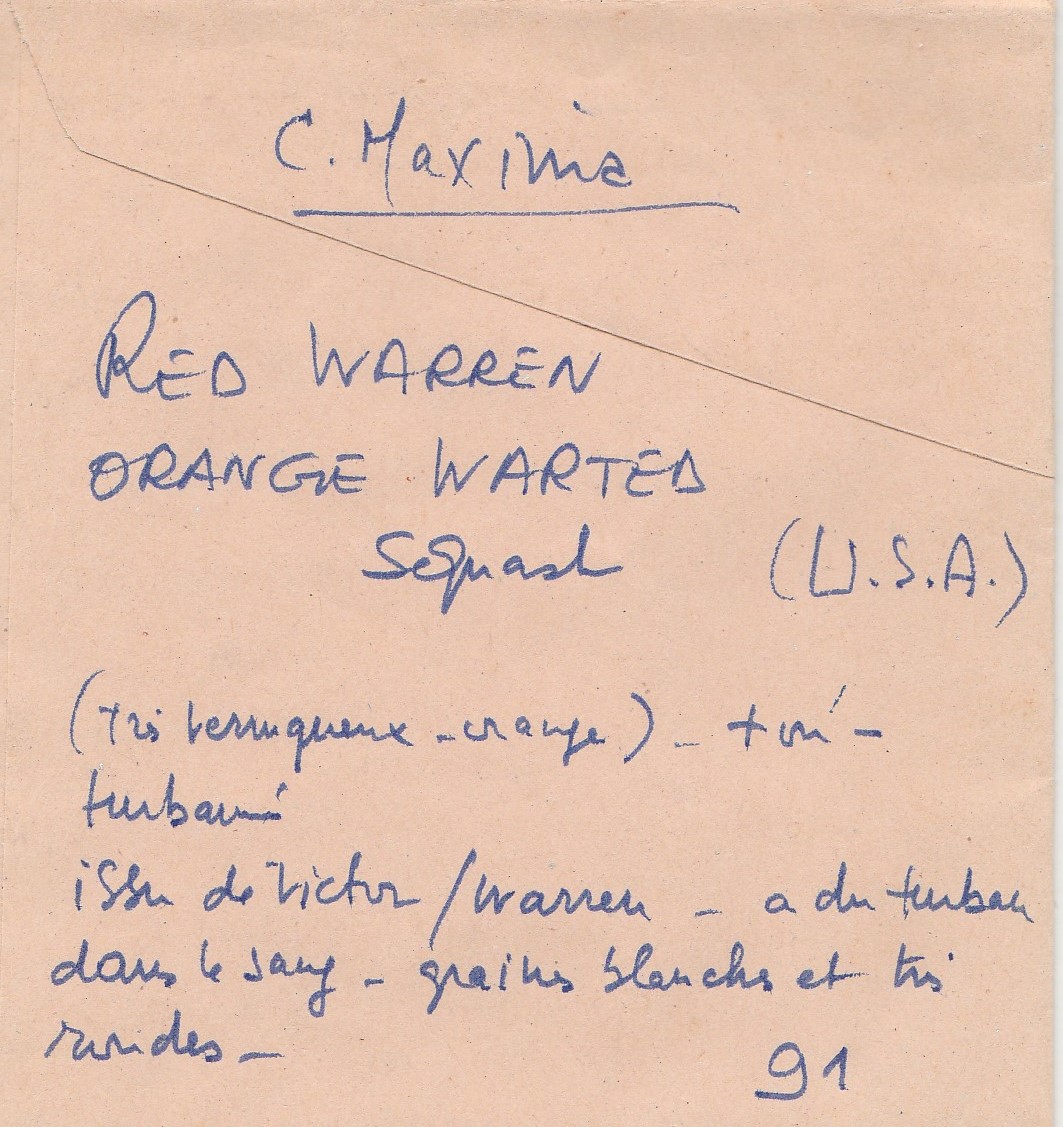 C. Maxima
RED WARREN
ORANGE WARTED
Squash (U.S.A.)
(très verruqueux - orange) -
turbané
issu de Victor / Warren - a du turban
dans le sang - graines blanches et très
rondes -
91